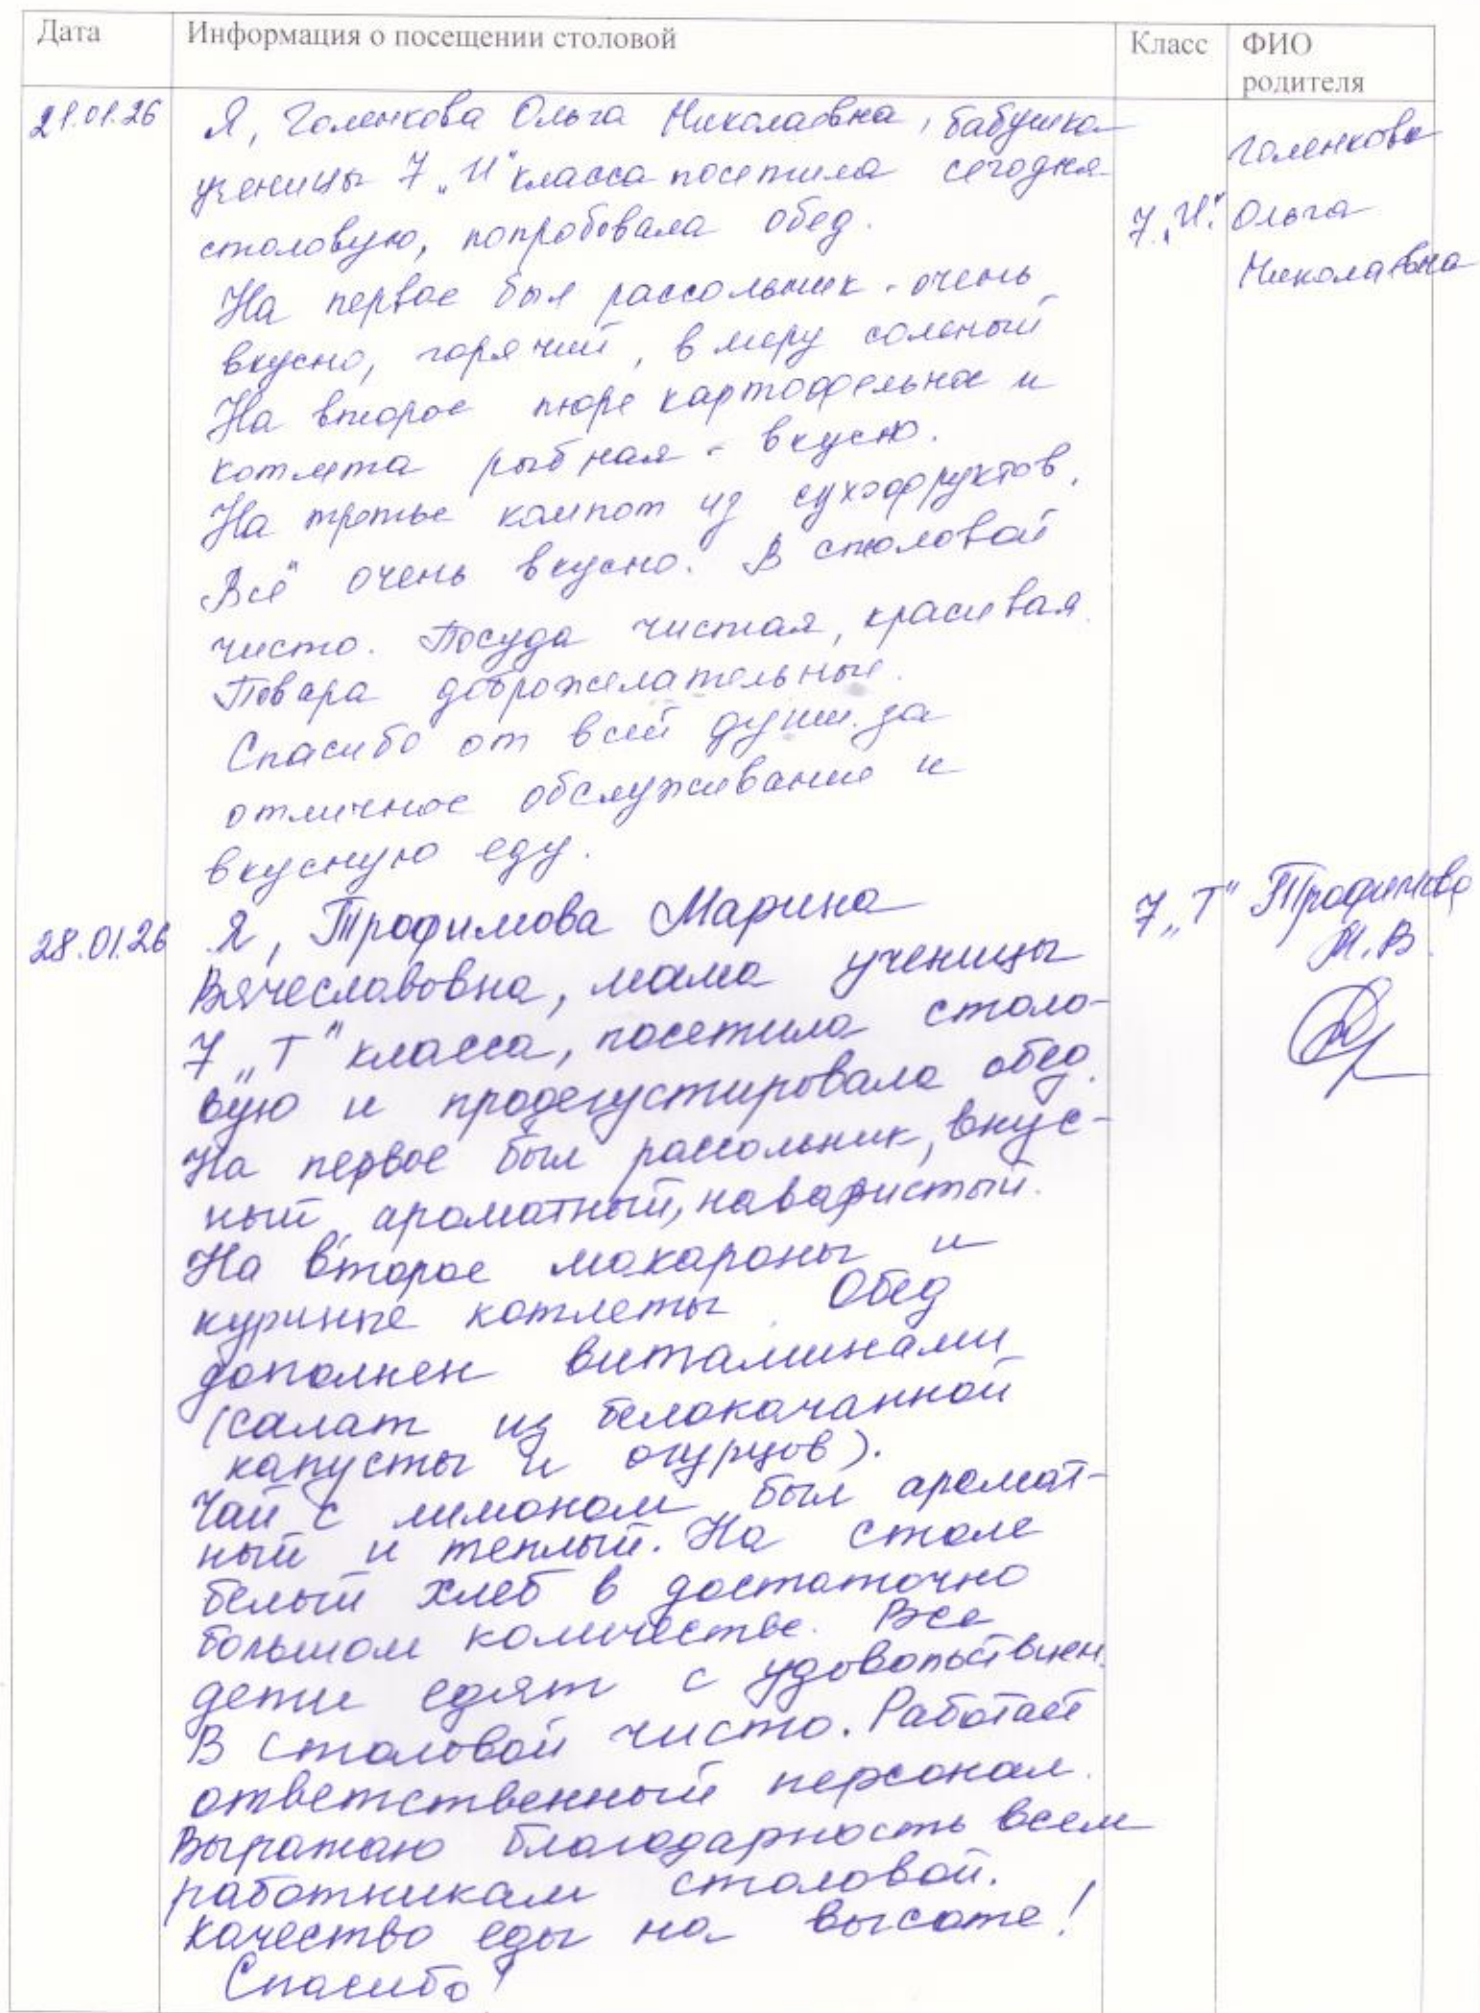 Дата Информация о посещении столовой Класс ФИО родителя
21.01.26 Я, Голенкова Ольга Николаевна, бабушка
ученицы 7 „И" класса посетила сегодня
столовую, попробовала обед.
На первое был рассольник - очень
вкусно, горячий, в меру соленый
На второе пюре картофельное и
котлета рыбная - вкусно.
На третье компот из сухофруктов.
Всё очень вкусно. В столовой
чисто. Посуда чистая, красивая.
Повара доброжелательные.
Спасибо от всей души за
отличное обслуживание и
вкусную еду.
7 „И".
Голенкова
Ольга
Николаевна
28.01.26 Я, Трофимова Марина
Вячеславовна, мама ученицы
7 „Т" класса, посетила столо-
вую и продегустировала обед.
На первое был рассольник, вкус-
ный, ароматный, наваристый.
На второе макароны и
куриные котлеты. Обед
дополнен витаминами
(салат из белокачанной
капусты и огурцов).
Чай с лимоном был аромат-
ный и теплый. На столе
белый хлеб в достаточно
большом количестве. Все
дети едят с удовольствием.
В столовой чисто. Работает
ответственный персонал.
Выражаю благодарность всем
работникам столовой.
Качество еды на высоте!
Спасибо!
7 „Т"
Трофимова
М.В.